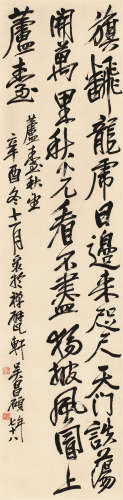 旗翻龍虎日邊來咫尺天門詄蕩
開萬里秋光看不盡獨披風冒上
蘆臺
蘆臺秋望
辛酉冬十一月客於禪甓軒吳昌碩年八